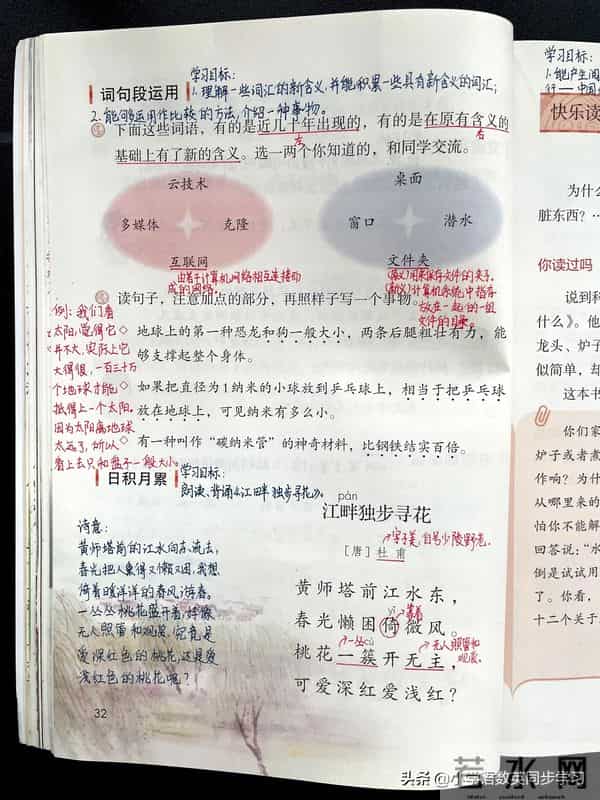 学习目标:
词句段运用
1.理解一些词汇的新含义,并能积累一些具有新含义的词汇;
2.能够运用作比较的方法,介绍一种事物。
下面这些词语,有的是近几十年出现的,有的是在原有含义的
左
右
基础上有了新的含义。选一两个你知道的,和同学交流。
云技术
多媒体
克隆
互联网
由若干计算机网络相互连接而
成的网络
桌面
窗口
潜水
文件夹
(原义)用来保存文件的夹子。
(新义)计算机系统中指存
放在一起的一组
文件的目录。
读句子,注意加点的部分,再照样子写一个事物。
例:我们看
太阳,觉得它
并不大,实际上它
大得很,一百三十万
个地球才能
抵得上一个太阳。
因为太阳离地球
太远了,所以
看上去只和盘子一般大小。
地球上的第一种恐龙和狗一般大小,两条后腿粗壮有力,能
够支撑起整个身体。
如果把直径为1纳米的小球放到乒乓球上,相当于把乒乓球
放在地球上,可见纳米有多么小。
有一种叫作“碳纳米管”的神奇材料,比钢铁结实百倍。
日积月累
学习目标:
朗读、背诵《江畔独步寻花》。
pàn
江畔独步寻花
字子美,自号少陵野老。
[唐]杜甫
黄师塔前江水东,
yǐ
靠着
春光懒困倚微风。
一丛
cù
无人照管和
观赏。
桃花一簇开无主,
可爱深红爱浅红?
诗意:
黄师塔前的江水向东流去,
春光把人熏得又懒又困,我想
倚着暖洋洋的春风游春。
一丛丛桃花盛开着,好像
无人照管和观赏,究竟是
爱深红色的桃花,还是爱
浅红色的桃花呢?
32
1.能产生阅
快乐读
为什么
脏东西?
你读过吗
说到科
什么》。他
龙头、炉子
似简单,却
这本书
你们家
炉子或者煮
作响?为什
从哪里来的
怕你不能解
回答说:“水
倒是试试用
了。你看,
十二个关于
头条 @小学语数英同步学习
若水网